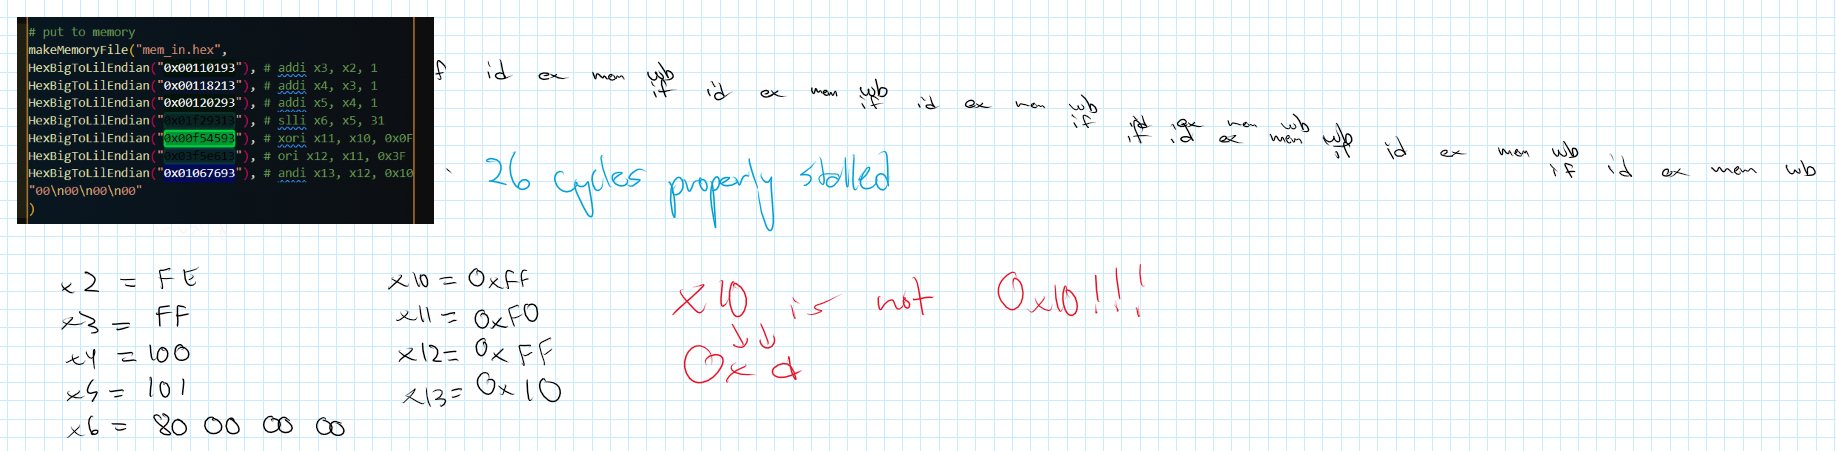 # put to memory
makeMemoryFile("mem_in.hex",
HexBigToLilEndian("0x00110193"), # addi x3, x2, 1
HexBigToLilEndian("0x00118213"), # addi x4, x3, 1
HexBigToLilEndian("0x00120293"), # addi x5, x4, 1
HexBigToLilEndian("0x01f29313"), # slli x6, x5, 31
HexBigToLilEndian("0x00f54593"), # xori x11, x10, 0x0F
HexBigToLilEndian("0x03f5e613"), # ori x12, x11, 0x3F
HexBigToLilEndian("0x01067693"), # andi x13, x12, 0x10
"00\n00\n00\n00"
)
f id ex mem wb
if id ex mem wb
if id ex mem wb
if id ex mem wb
if id ex mem wb
if id ex mem wb
if id ex mem wb
26 cycles properly stalled
x2 = FE
x3 = FF
x4 = 100
x5 = 101
x6 = 80 00 00 00
x10 = 0xFF
x11 = 0xF0
x12 = 0xFF
x13 = 0x10
x10 is not 0x10!!!
↓↓
0xa